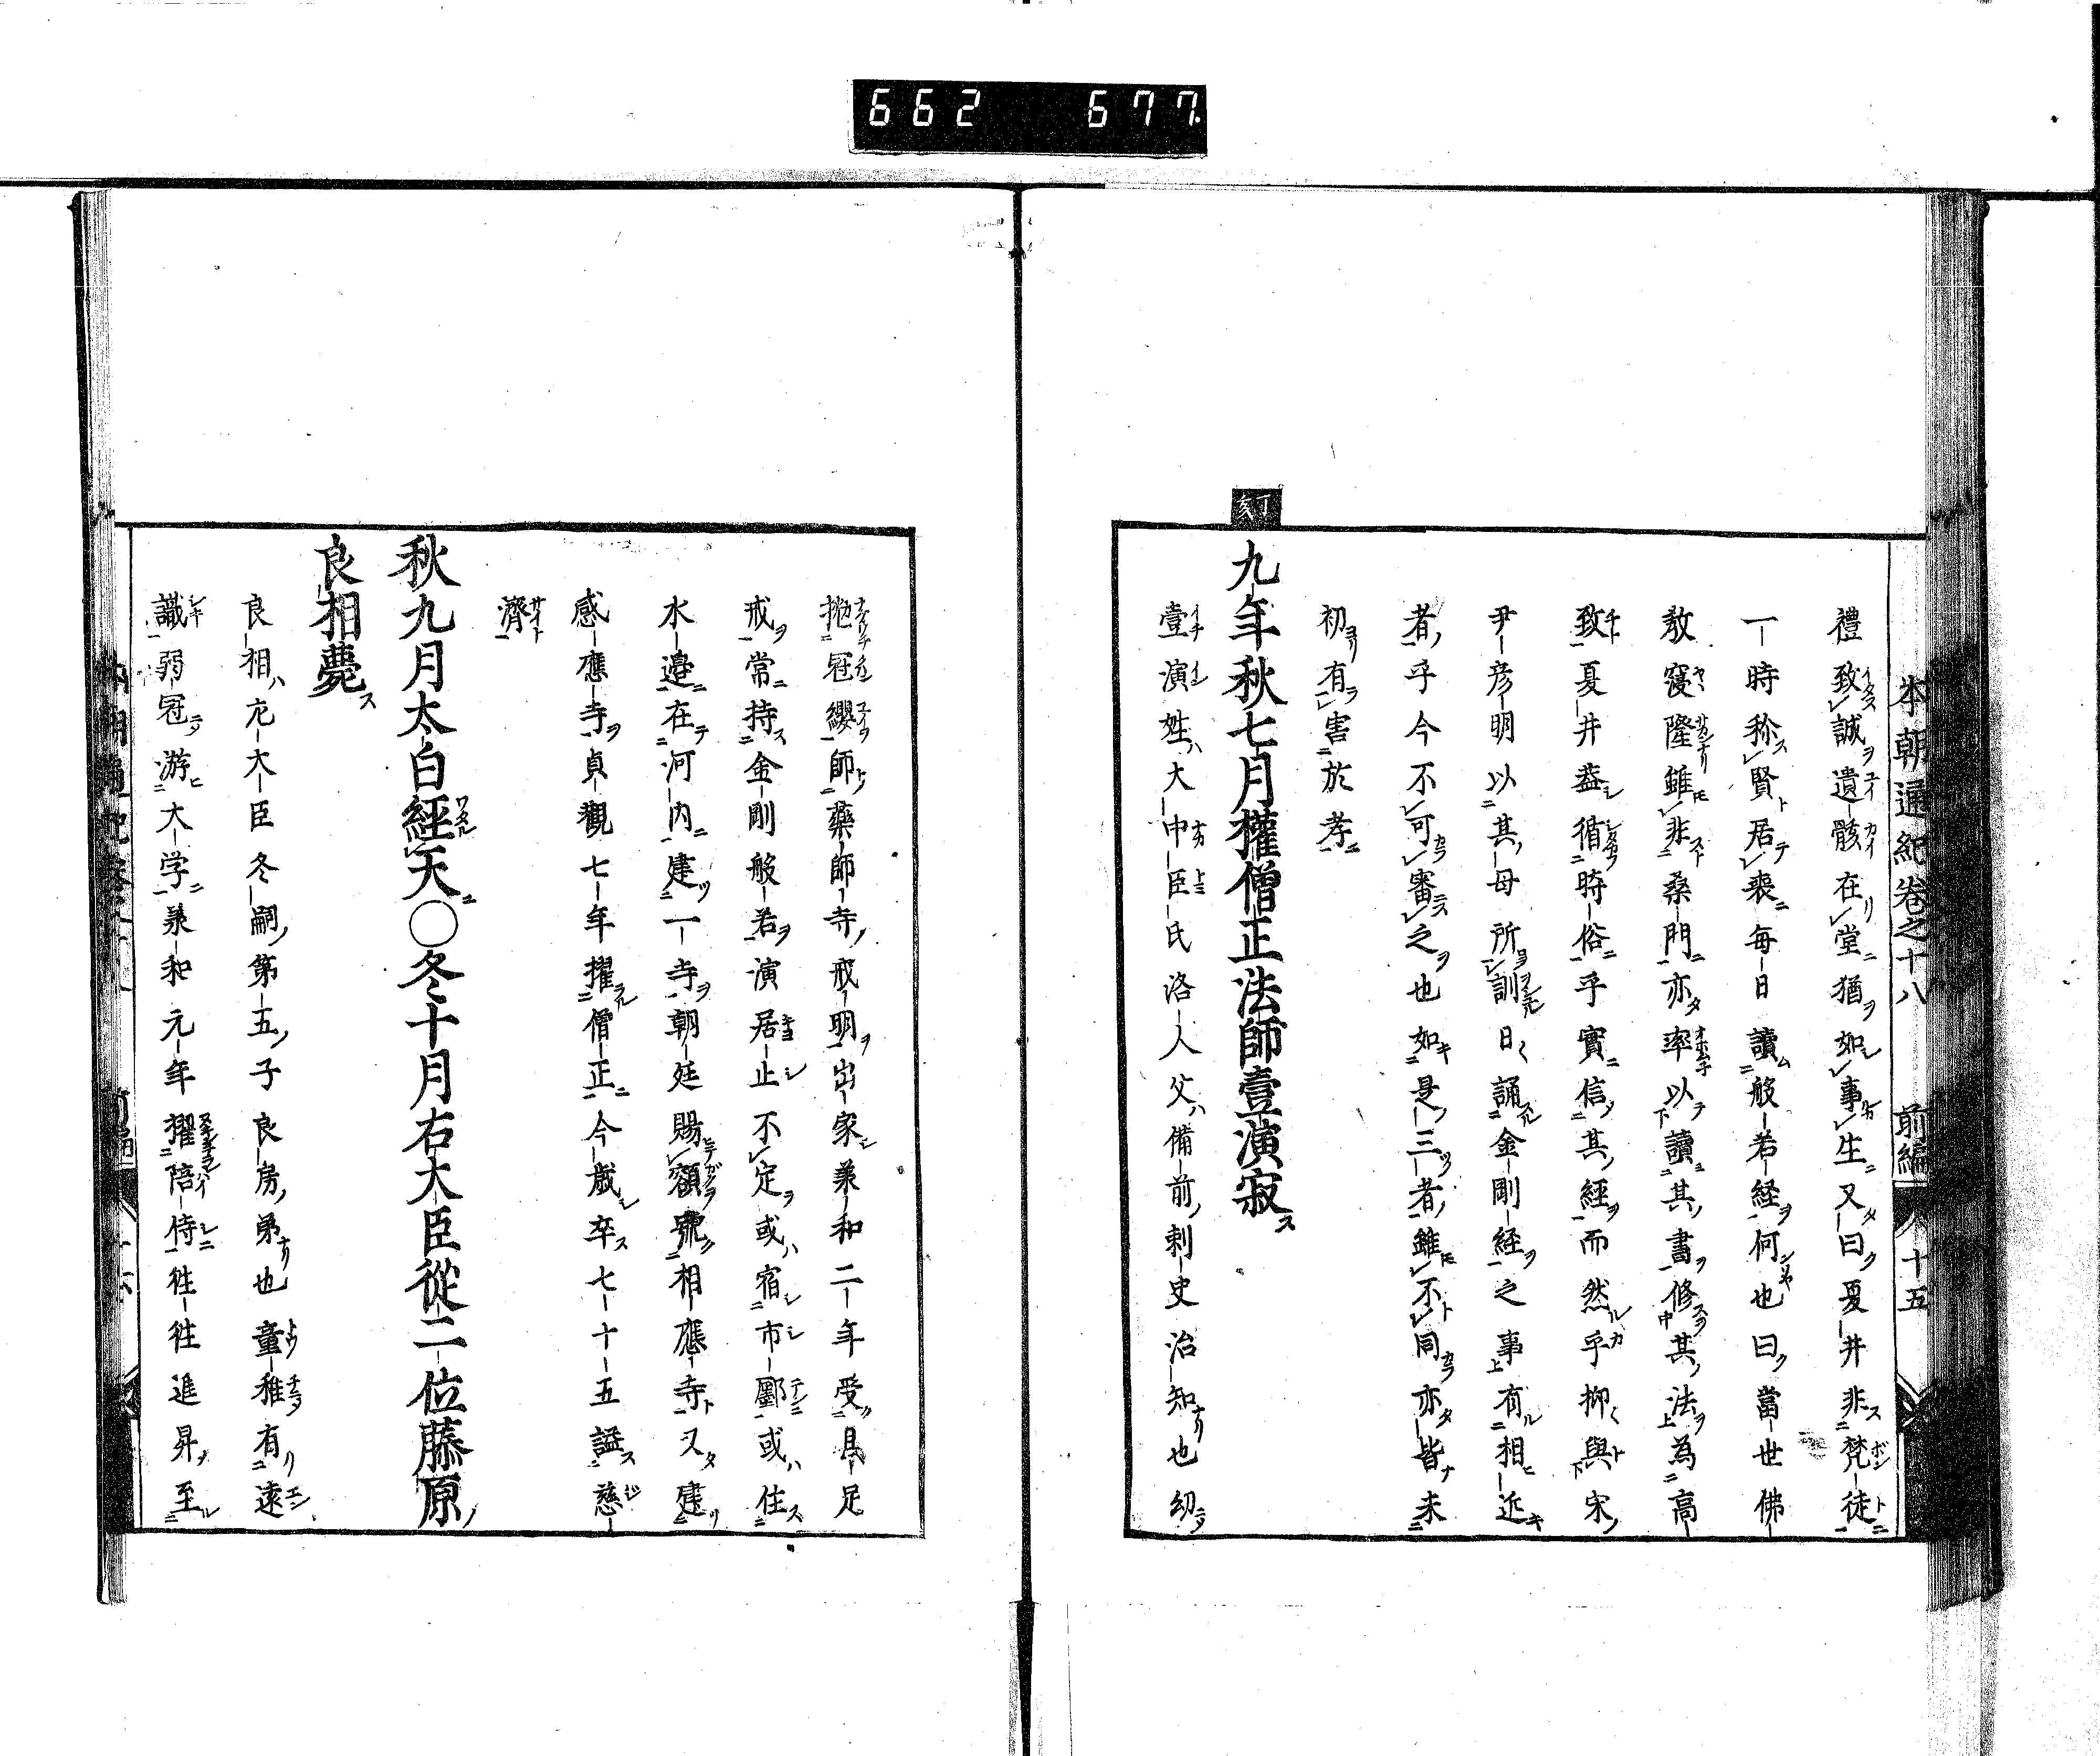 662 677
本朝通紀卷之十八 前編 八 十五
禮致誠遺骸在堂猶如事生又曰夏井非梵徒
一時称賢居喪每日讀般若経何也曰當世佛
教寖隆雖非桑門亦率以讀其書修其法為高
致夏井蓋循時俗乎實信其經而然乎抑與宋
尹彦明以其母所訓日誦金剛経之事有相近
者乎今不可審之也如是三者雖不同亦皆未
初有害於孝
丁亥
九年秋七月權僧正法師壹演寂
壹演姓大中臣氏洛人父備前刺史治知也幼
拋冠纓師藥師寺戒明出家美和二年受具足
戒常持金剛般若演居止不定或宿市鄽或住
水邊在河內建一寺朝廷賜額號相應寺又建
感應寺貞觀七年擢僧正今歲卒七十五謚慈
濟
秋九月太白經天〇冬十月右大臣從二位藤原
良相薨
良相左大臣冬嗣第五子良房弟也童稚有遠
識弱冠游大学美和元年擢陪侍徃徃進昇至